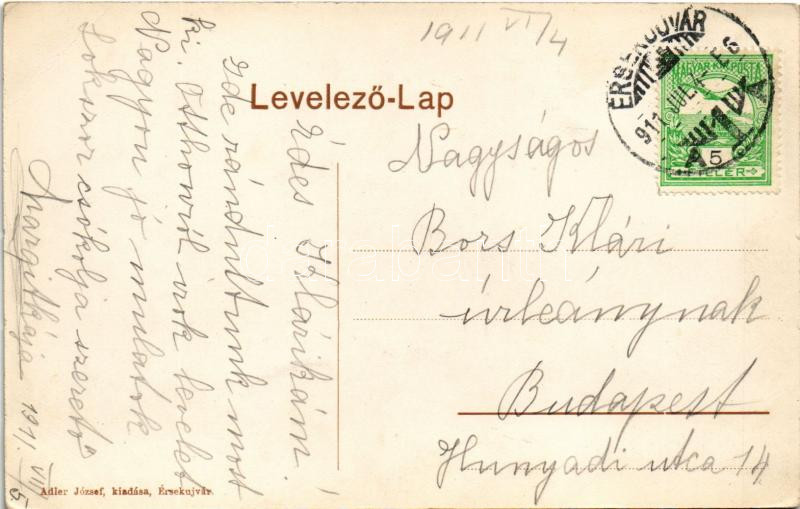 1911 VII/4
Levelező-Lap
ÉRSEKUJVÁR
911 JUL.
MAGYAR KIR. POSTA
5
FILLÉR
Nagyságos
Bors Klári
úrleánynak
Budapest
Hunyadi utca 14
Édes Klárikám!
Ide rándultunk most
ki. Otthonról irok levelet
Nagyon jó mulatok
Sokszor csókolja szerető
Margitkája 1911. VII/5
Adler József, kiadása, Érsekujvár.
darabanth